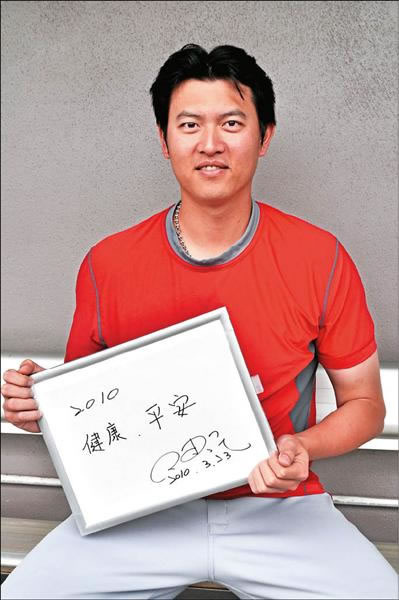 2010
健康．平安
2010.3.23